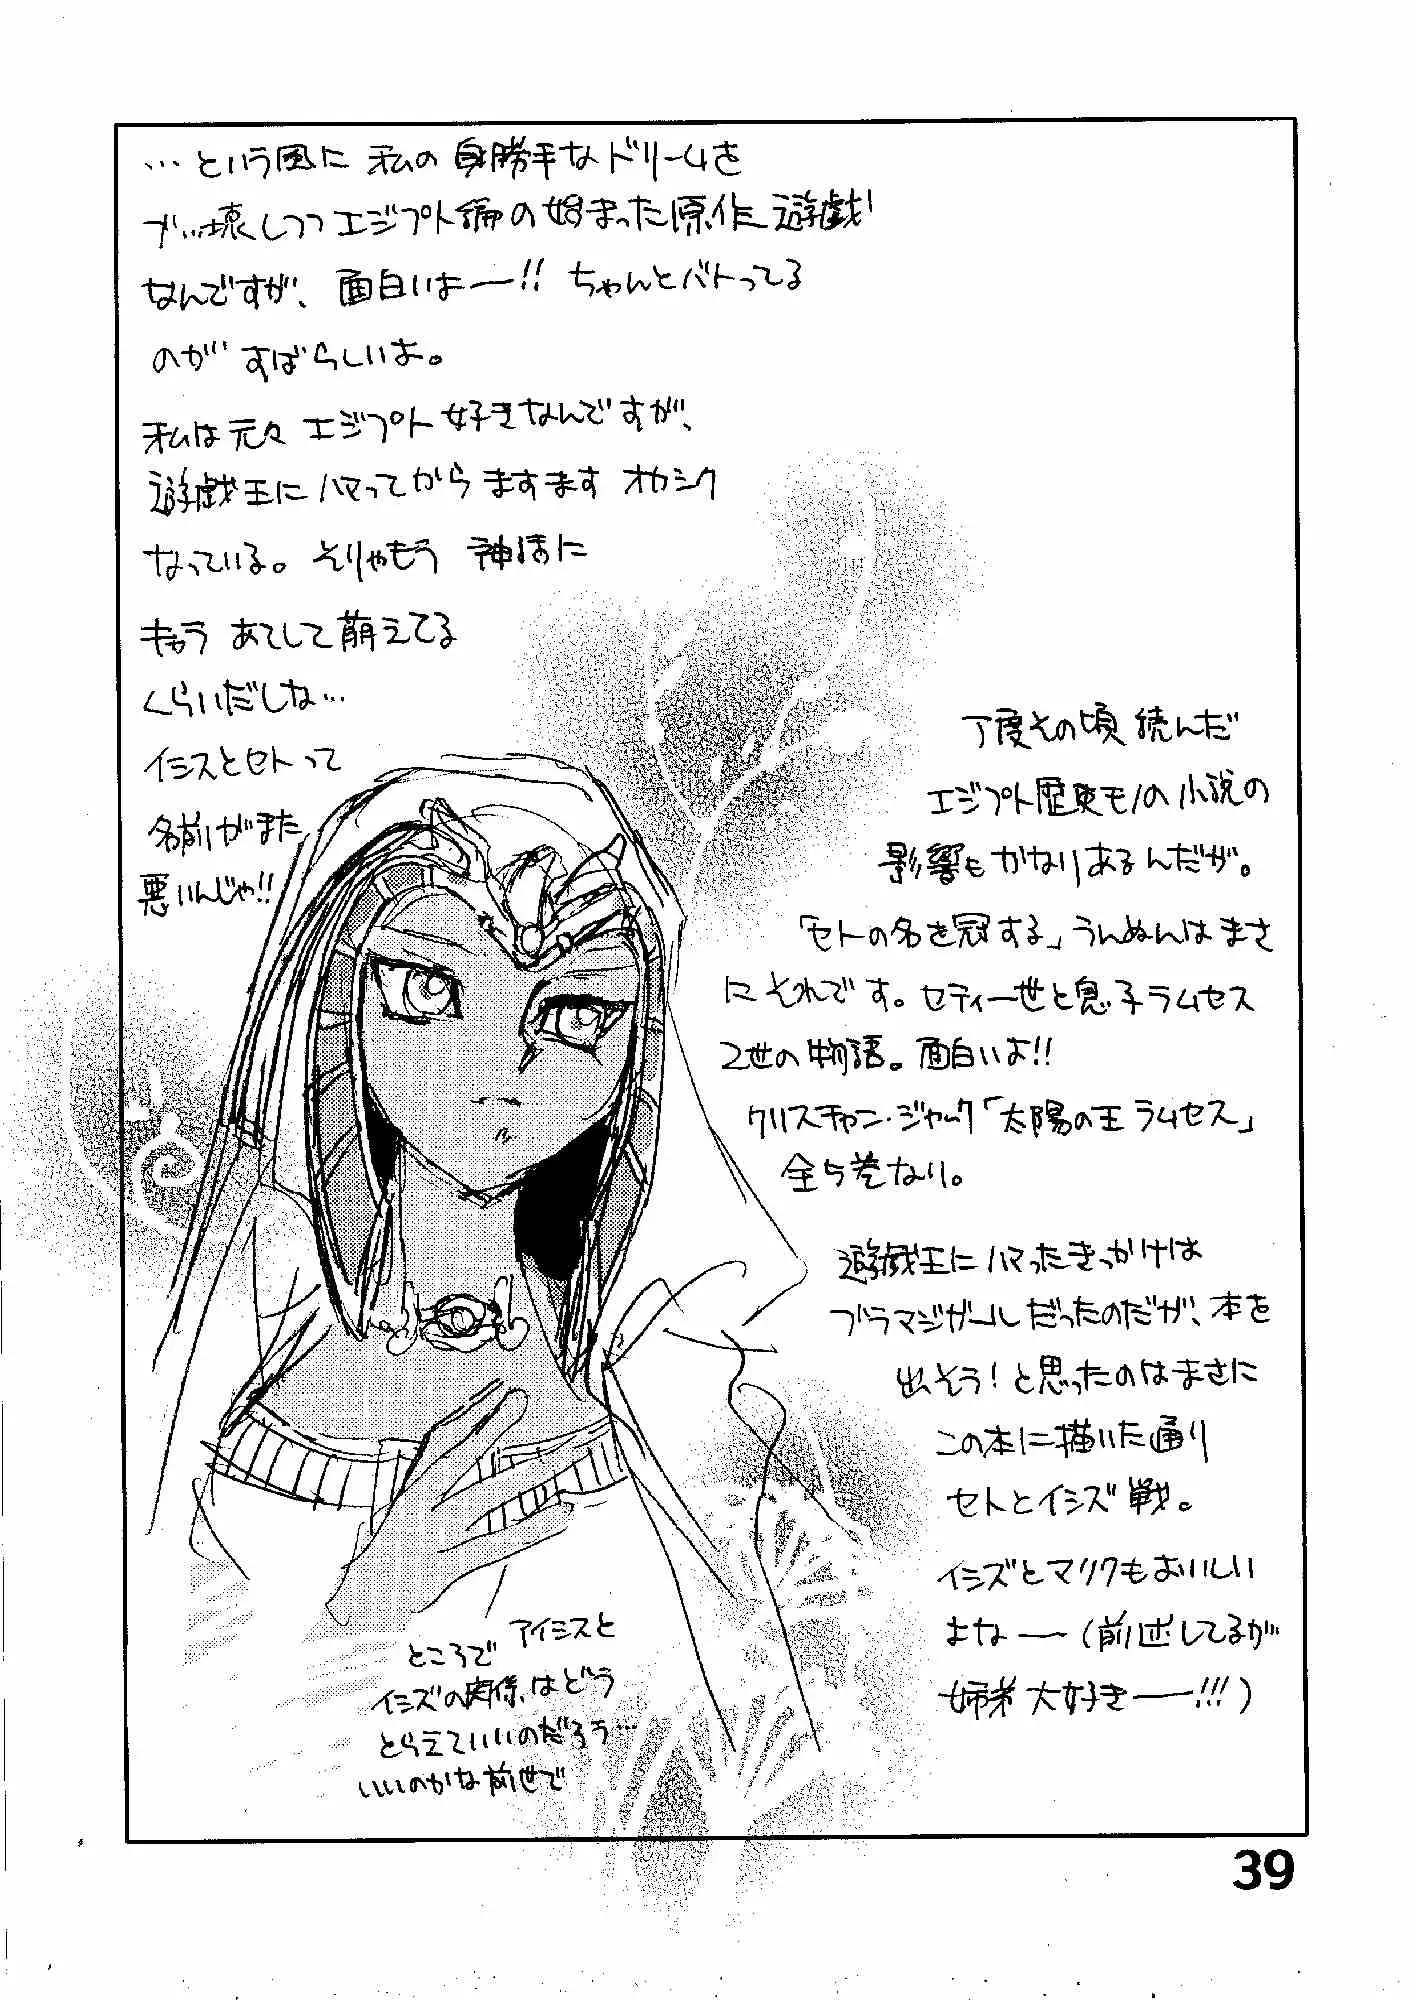 …という風に 私の身勝手なドリームを
ブッ壊しつつエジプト編の始まった原作遊戯
なんですが、面白いよー!! ちゃんとバトってる
のが すばらしいよ。
私は元々 エジプト好きなんですが、
遊戯王にハマってから ますます オカシク
なっている。そりゃもう 神話に
キャラ あてして萌えてる
くらいだしな…
イシスとセトって
名前がまた
悪いんじゃ!!
丁度その頃 読んだ
エジプト歴史モノの小説の
影響も かなりあるんだが。
「セトの名を冠する」うんぬんは まさ
に それです。セティ一世と息子ラムセス
2世の物語。面白いよ!!
クリスチャン・ジャック「太陽の王 ラムセス」
全5巻なり。
遊戯王に ハマったきっかけは
ブラマジガールだったのだが、本を
出そう!と思ったのは まさに
この本に描いた通り
セトとイシズ戦。
イシズとマリクも おいしい
よなー(前述してるが
姉弟 大好きー!!!)
ところで アイシスと
イシズの関係、はどう
とらえていいのだろう…
いいのかな前世で
39